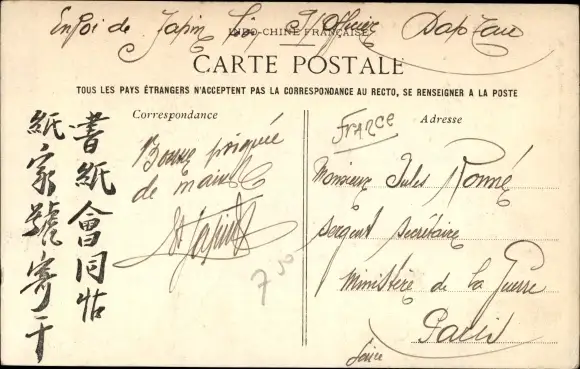 Envoi de Japin
INDO-CHINE FRANÇAISE
CARTE POSTALE
TOUS LES PAYS ÉTRANGERS N'ACCEPTENT PAS LA CORRESPONDANCE AU RECTO, SE RENSEIGNER A LA POSTE
Correspondance
Bonne poignée
de main
Japin
7 50
書紙會同帖
紙家號寄干
Adresse
FRANCE
Monsieur Jules Ronné
Sergent Secrétaire
Ministère de la Guerre
Paris